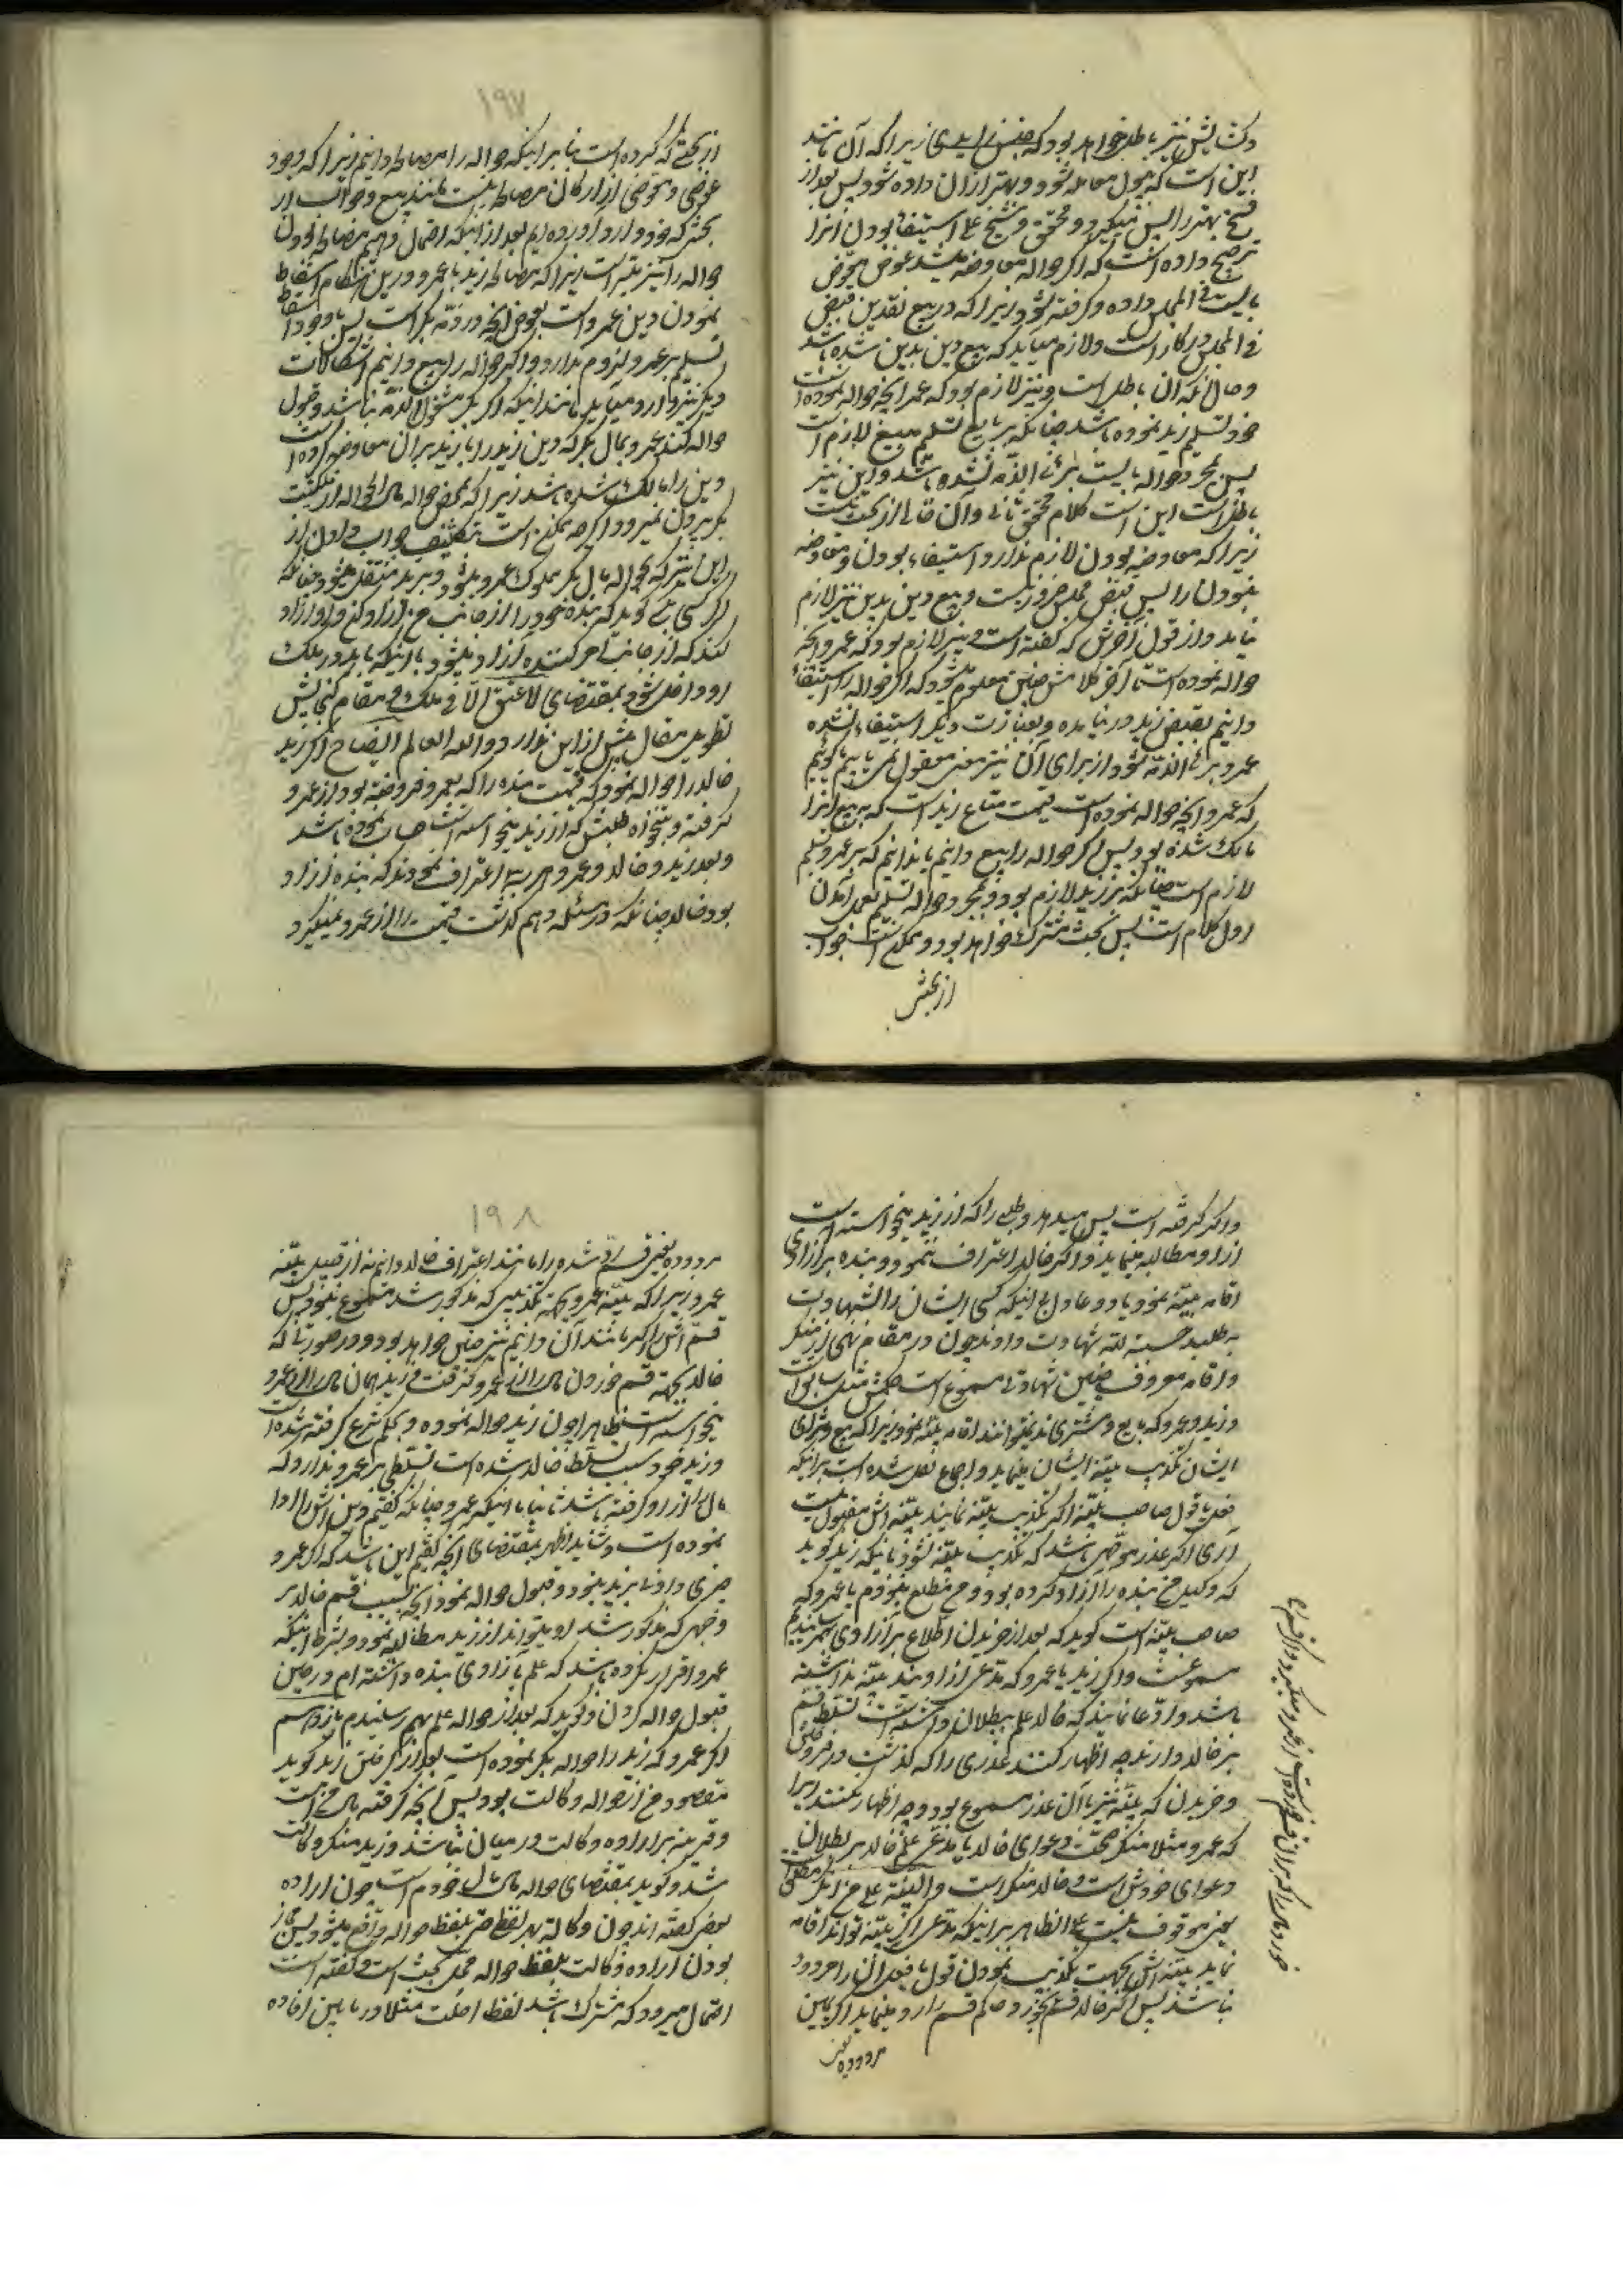 زیرا که آن مانند
این است که
فسخ بهتر را پس میگیرد و محقق و شیخ علی استیفا بودن آنرا
ترجیح داده است که اگر حواله معاوضه
بایست فی المجلس داده و گرفته شود زیرا که در بیع نقدین قبض
فی المجلس در کار است و لازم میآید که بیع دین بدین شده باشد
و حال آنکه آن باطل است و نیز لازم بود که عمر آنچه حواله نموده است
خود تسلیم زید نموده باشد چنانکه بر بایع تسلیم مبیع لازم است
پس بمجرد حواله بایست بری الذمه نشده باشد و این نیز
باطل است این است کلام محقق ثانی و آن خالی از بحث نیست
زیرا که معاوضه بودن لازم ندارد و استیفاء بودن و معاوضه
نبودن را پس قبض مجلس ضرور نیست و بیع دین بدین نیز لازم
نیاید و از قول آخرش که گفته است و نیز لازم بود که عمرو آنچه
حواله نموده است تا آخر کلامش چنین معلوم میشود که اگر حواله را استیفاء
دانیم بقبض زید در نیامده و بعبارت دیگر استیفاء نشده
عمرو بری الذمه شود از برای آن نیز معنی معقول نمی یابیم تا گوئیم
که عمرو آنچه حواله نموده است قیمت متاع زید است که به بیع آنرا
مالک شده بود پس اگر حواله را بیع دانیم یا ندانیم که بر عمرو تسلیم
لازم است چنانکه بر زید لازم بود و بمجرد حواله تسلیم بعمل آمدن
اول کلام است پس بحث مشترک خواهد بود و ممکن است جواب
از بحثش
۱۹۷
از بحثی که کرده است بنا بر اینکه حواله را مصالحه دانیم زیرا که وجود
عوضی و معوضی از ارکان مصالحه نیست مانند بیع و جواب از
بحثی که خود وارد آورده ایم بعد از آنکه احتمال دهیم مصالحه بودن
حواله را نیز میسر است زیرا که مصالحه زید با عمرو در این مقام اسقاط
نمودن دین عمرو است بعوض آنچه در ذمه بکر است پس با وجود اسقاط
تسلیم بر عمرو لزوم ندارد و اگر حواله را بیع دانیم اشکالات
دیگر نیز وارد میآید مانند اینکه اگر بکر مشغول الذمه نباشد و قبول
حواله کند عمرو بمال بکر که دین زید را با زید بر آن معاوضه کرده است
دین را مالک شده باشد زیرا که بمحض حواله مال المحال از ملکیت
بکر بیرون نمیرود اگرچه ممکن است بتکلیف جواب دادن از
این نیز که بحواله مال بکر مملوک عمرو میشود و بزید منتقل میشود چنانکه
اگر کسی بکسی گوید که بنده خود را از جانب من آزاد کن و او آزاد
کند که از جانب امر کننده آزاد میشود با اینکه باید در ملک
او داخل شود بمقتضای لا عتق الا فی ملک و مقام گنجایش
تطویل مقال بیش از این ندارد و الله العالم ایضاح اگر زید
خالد را حواله نمود که قیمت بنده را که بعمرو فروخته بود از عمرو
گرفته و بتنخواه طلبش که از زید میخواسته است حساب نموده باشد
و بعد زید و خالد و عمرو هر سه اعتراف نمودند که بنده آزاد
بود خالد چنانکه در مسئله دهم گذشت قیمت را از عمرو نمیگیرد
و اگر گرفته است پس میدهد و طلبی را که از زید میخواسته است
از او مطالبه مینماید و اگر خالد اعتراف ننمود و بنده بر آزادی
اقامه بینه نمود یا دو عادل بی اینکه کسی ایشان را بشهادت
به طلبد حسبة لله شهادت دادند چون در مقام نهی از منکر
و اقامه معروف چنین شهادتی مسموع است حکمش مثل سابق است
و زید و عمرو که بایع و مشتری اند نمیتوانند اقامه بینه نمود زیرا که بیع و شرای
ایشان تکذیب بینه ایشان مینماید و اجماع نقل شده است بر اینکه
فعل یا قول صاحب بینه اگر تکذیب بینه نماید بینه اش مقبول نیست
آری اگر عذر موجهی باشد که تکذیب بینه نشود باینکه زید گوید
که وکیل من بنده را آزاد کرده بود و من مطلع نبودم یا عمرو که
صاحب بینه است گوید که بعد از خریدن اطلاع بر آزادی بهم رسانیدم
مسموعست و اگر زید یا عمرو که مدعی آزادی اند بینه نداشته
باشند و ادعا نمایند که خالد علم ببطلان داشته است تسلط قسم
بر خالد دارند چه اظهار کنند عذری را که گذشت در فروختن
و خریدن که بینه نیز با آن عذر مسموع بود و چه اظهار نکنند زیرا
که عمرو مثلا منکر صحت دعوای خالد یا مدعی علم خالد بر بطلان
دعوای خودش است و خالد منکر است و الیمین علی من انکر مطلق است
یعنی موقوف نیست علی الظاهر بر اینکه مدعی اگر بینه تواند اقامه
نماید بینه اش بجهت تکذیب نمودن قول یا فعل آن را مردود
نباشد پس اگر خالد قسم بخورد و حاکم قسم را رد مینماید اگر یمین
مردوده یعنی
۱۹۸
مردوده یعنی قسم رد شده را مانند اعتراف خالد دانیم نه از قبیل بینه
عمرو زیرا که بینه عمرو بجهة تکذیبی که مذکور شد مسموع نبود پس
قسم اش را اگر مانند آن دانیم نیز چنین خواهد بود و در صورتی که
خالد بجهة قسم خوردن مال را از عمرو گرفت زید همان مال را از عمرو
میخواسته است بظاهر چون زید حواله نموده و بحکم شرع گرفته شده است
و زید خود سبب تسلط خالد شده است تسلطی بر عمرو ندارد که
مال را از او گرفته باشد ثانیا با اینکه عمرو چنانکه گفتیم دین اش را ادا
نموده است و شاید اظهر بمقتضای آنچه گفتیم این باشد که اگر عمرو
چیزی دادنی بزید نبود و قبول حواله نمود آنچه بسبب قسم خالد بر
وجهی که مذکور شد او میتواند از زید مطالبه نمود و بشرط اینکه
عمرو اقرار نکرده باشد که علم بآزادی بنده داشته ام در حین
قبول حواله کردن و گوید که بعد از حواله علم بهم رسانیدم یازدهم
اگر عمرو که زید را حواله بکر نموده است بعد از گرفتن زید گوید
مقصود من از حواله وکالت بود پس آنچه گرفته مال من است
و قرینه بر اراده وکالت در میان نباشد و زید منکر وکالت
شد و گوید بمقتضای حواله مال مال خودم است چون اراده
بعض گفته اند چون وکالة بهر لفظ حتی بلفظ حواله واقع میشود پس مجاز
بودن اراده وکالت بلفظ حواله محل بحث است و گفته است
احتمال میرود که مشترک باشد لفظ احلت مثلا در مابین افاده